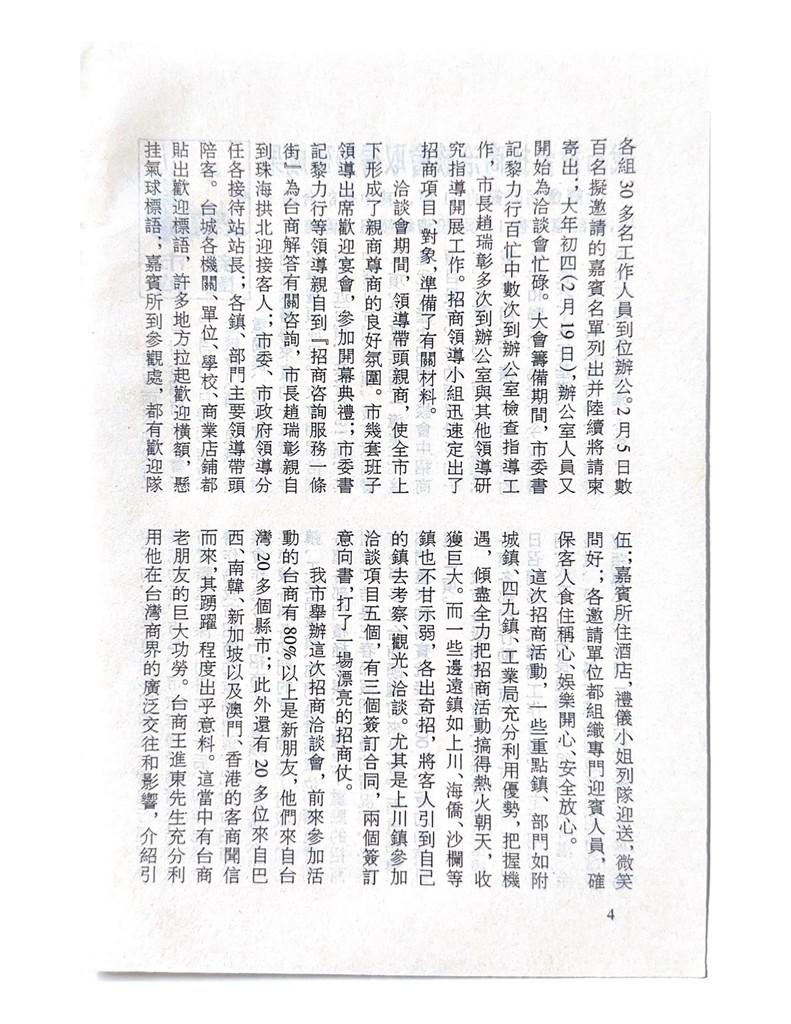 各組 30 多名工作人員到位辦公。2 月 5 日數
百名擬邀請的嘉賓名單列出并陸續將請柬
寄出；大年初四(2 月 19 日)，辦公室人員又
開始為洽談會忙碌。大會籌備期間，市委書
記黎力行百忙中數次到辦公室檢查指導工
作，市長趙瑞彰多次到辦公室與其他領導研
究指導開展工作。招商領導小組迅速定出了
招商項目、對象，準備了有關材料。
洽談會期間，領導帶頭親商，使全市上
下形成了親商尊商的良好氛圍。市幾套班子
領導出席歡迎宴會，參加開幕典禮；市委書
記黎力行等領導親自到『招商咨詢服務一條
街』為台商解答有關咨詢，市長趙瑞彰親自
到珠海拱北迎接客人；市委、市政府領導分
任各接待站站長；各鎮、部門主要領導帶頭
陪客。台城各機關、單位、學校、商業店鋪都
貼出歡迎標語，許多地方拉起歡迎橫額，懸
挂氣球標語；嘉賓所到參觀處，都有歡迎隊
伍；嘉賓所住酒店，禮儀小姐列隊迎送，微笑
問好；各邀請單位都組織專門迎賓人員，確
保客人食住稱心、娛樂開心、安全放心。
這次招商活動，一些重點鎮、部門如附
城鎮、四九鎮、工業局充分利用優勢，把握機
遇，傾盡全力把招商活動搞得熱火朝天，收
獲巨大。而一些邊遠鎮如上川、海僑、沙欄等
鎮也不甘示弱，各出奇招，將客人引到自己
的鎮去考察、觀光、洽談。尤其是上川鎮參加
洽談項目五個，有三個簽訂合同，兩個簽訂
意向書，打了一場漂亮的招商仗。
我市舉辦這次招商洽談會，前來參加活
動的台商有 80% 以上是新朋友，他們來自台
灣 20 多個縣市；此外還有 20 多位來自巴
西、南韓、新加坡以及澳門、香港的客商聞信
而來，其踴躍 程度出乎意料。這當中有台商
老朋友的巨大功勞。台商王進東先生充分利
用他在台灣商界的廣泛交往和影響，介紹引
4